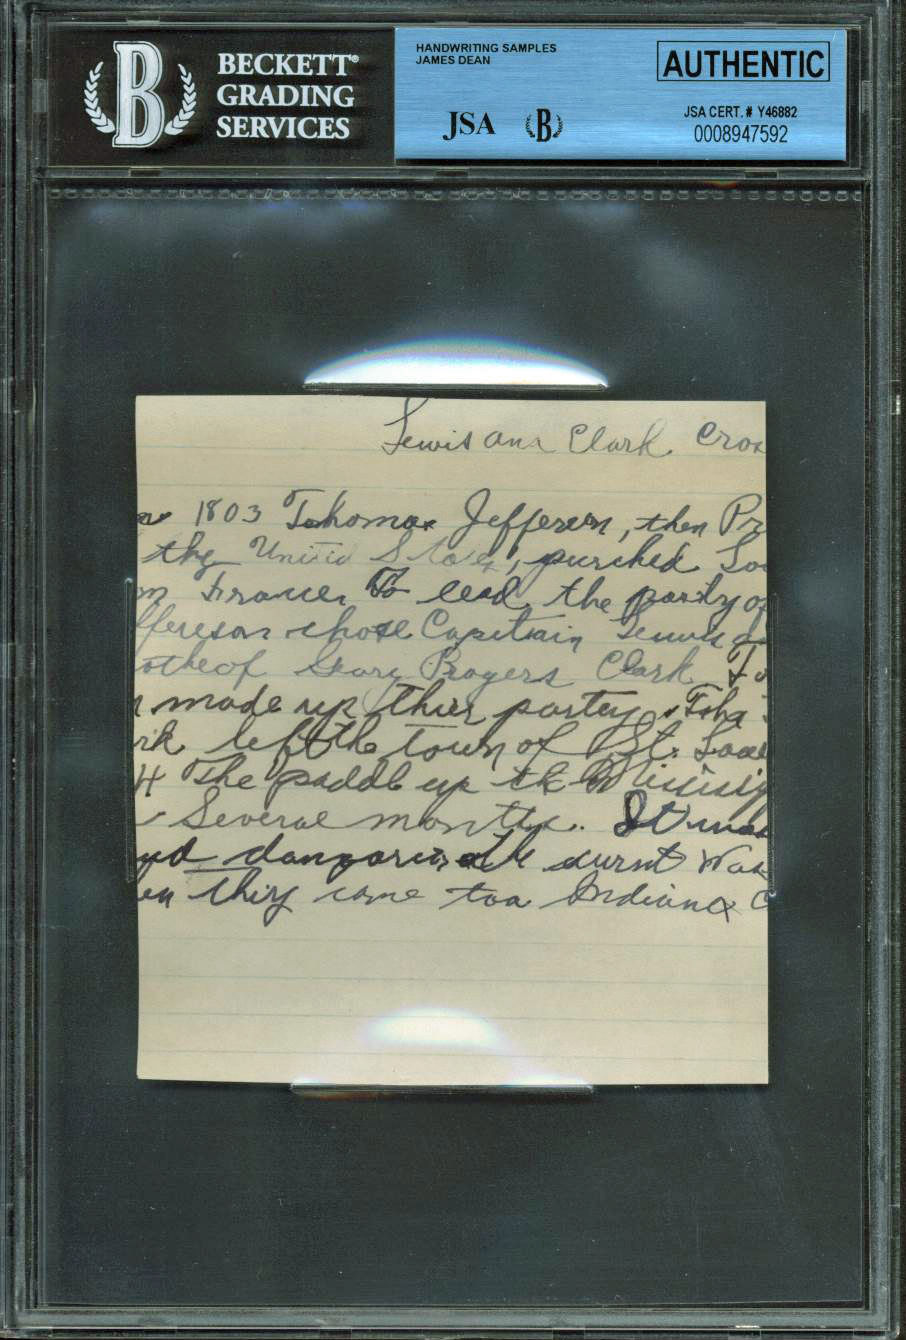 BECKETT®
GRADING
SERVICES
HANDWRITING SAMPLES
JAMES DEAN
AUTHENTIC
JSA
B
JSA CERT. # Y46882
0008947592
Lewis and Clark Cros
1803 Tohomas Jefferson, then Pr
the United States, purched Lo
m France. To lead the party of
fferson chose Captain Lewis
othe of Geary Rogers Clark To
made up thier partey. Tha
rk left the town of St. Loue
The paddle up the Missisip
Several months. It was
dangoris. The curnt was
en thiy came too Indiana C